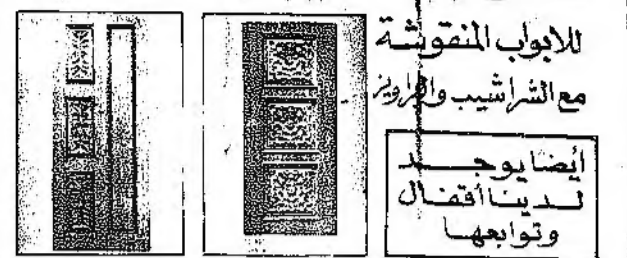 للابواب المنقوشة
مع الشراشيب والبراويز
أيضا يوجد
لدينا أقفال
وتوابعها